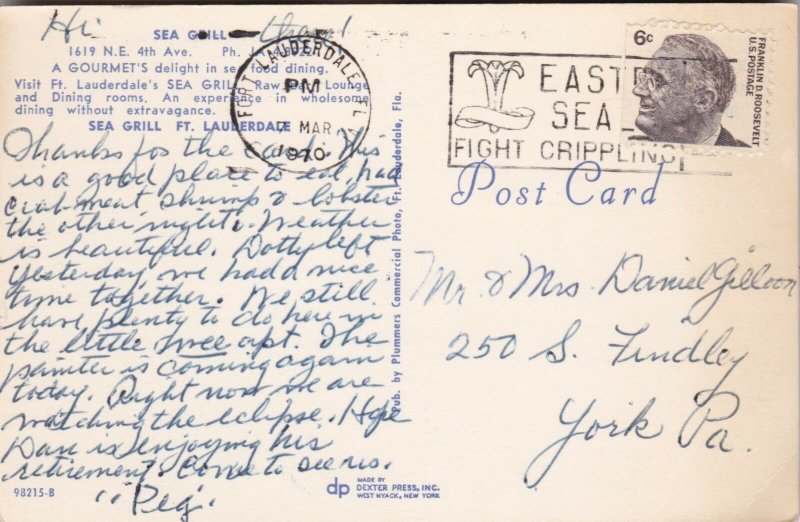 Hi
SEA GRILL
1619 N.E. 4th Ave. Ph.
A GOURMET'S delight in sea food dining.
Visit Ft. Lauderdale's SEA GRILL Raw Lounge
and Dining rooms. An experience in wholesome
dining without extravagance.
SEA GRILL FT. LAUDERDALE
Thanks for the card. This
is a good place to eat, had
crab meat shrimp & lobster
the other night. Weather
is beautiful. Dotty left
yesterday, we had a nice
time together. We still
have plenty to do here in
the little apt. The
painter is coming again
today. Right now we are
watching the eclipse. Hope
Dan is enjoying his
retirement. Come to see us.
"Peg"
98215-B
Pub. by Plummers Commercial Photo, Ft. Lauderdale, Fla.
dp MADE BY
DEXTER PRESS, INC.
WEST NYACK, NEW YORK
FORT LAUDERDALE, FL
PM
7 MAR
1970
EAST
SEA
FIGHT CRIPPLING!
6c
FRANKLIN D. ROOSEVELT
U.S. POSTAGE
Post Card
Mr. & Mrs. Daniel Gilloon
250 S. Findley
York Pa.